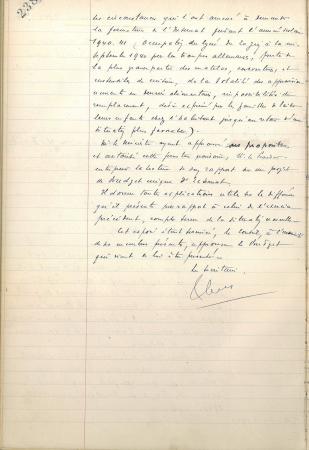 238
les circonstances qui l'ont amené à demander
la fermeture de l'Internat pendant l'année scolaire
1940-41 (occupation du lycée de la mi-
septembre 1940 par les troupes allemandes, perte de
la plus grande partie des matelas, couvertures, et
ustensiles de cuisine, de la totalité des approvision-
nements en denrées alimentaires, impossibilité de
remplacement, désir exprimé par les familles de laisser
leurs enfants chez d'habitant jusqu'au retour d'une
situation plus favorable).
M. le Ministre ayant approuvé ses propositions
et autorisé cette fermeture provisoire,
la lecture de son rapport sur un projet
de Budget unique d'Externat.
Il donne toutes explications utiles sur les différences
qu'il présente par rapport à celui de l'exercice
précédent, compte tenu de la situation nouvelle.
Cet exposé étant terminé, le conseil, à l'unanimité
des membres présents, approuve le Budget
qui vient de lui être présenté.
Le Secrétaire,